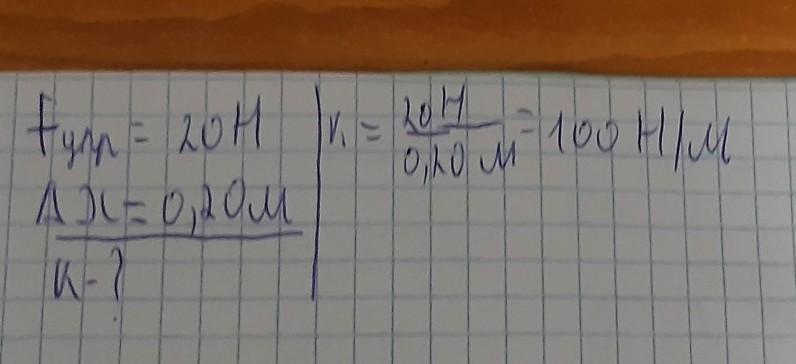 Fупр = 20 Н
Δx = 0,20 м
k - ?
k = 20 Н / 0,20 м = 100 Н/м